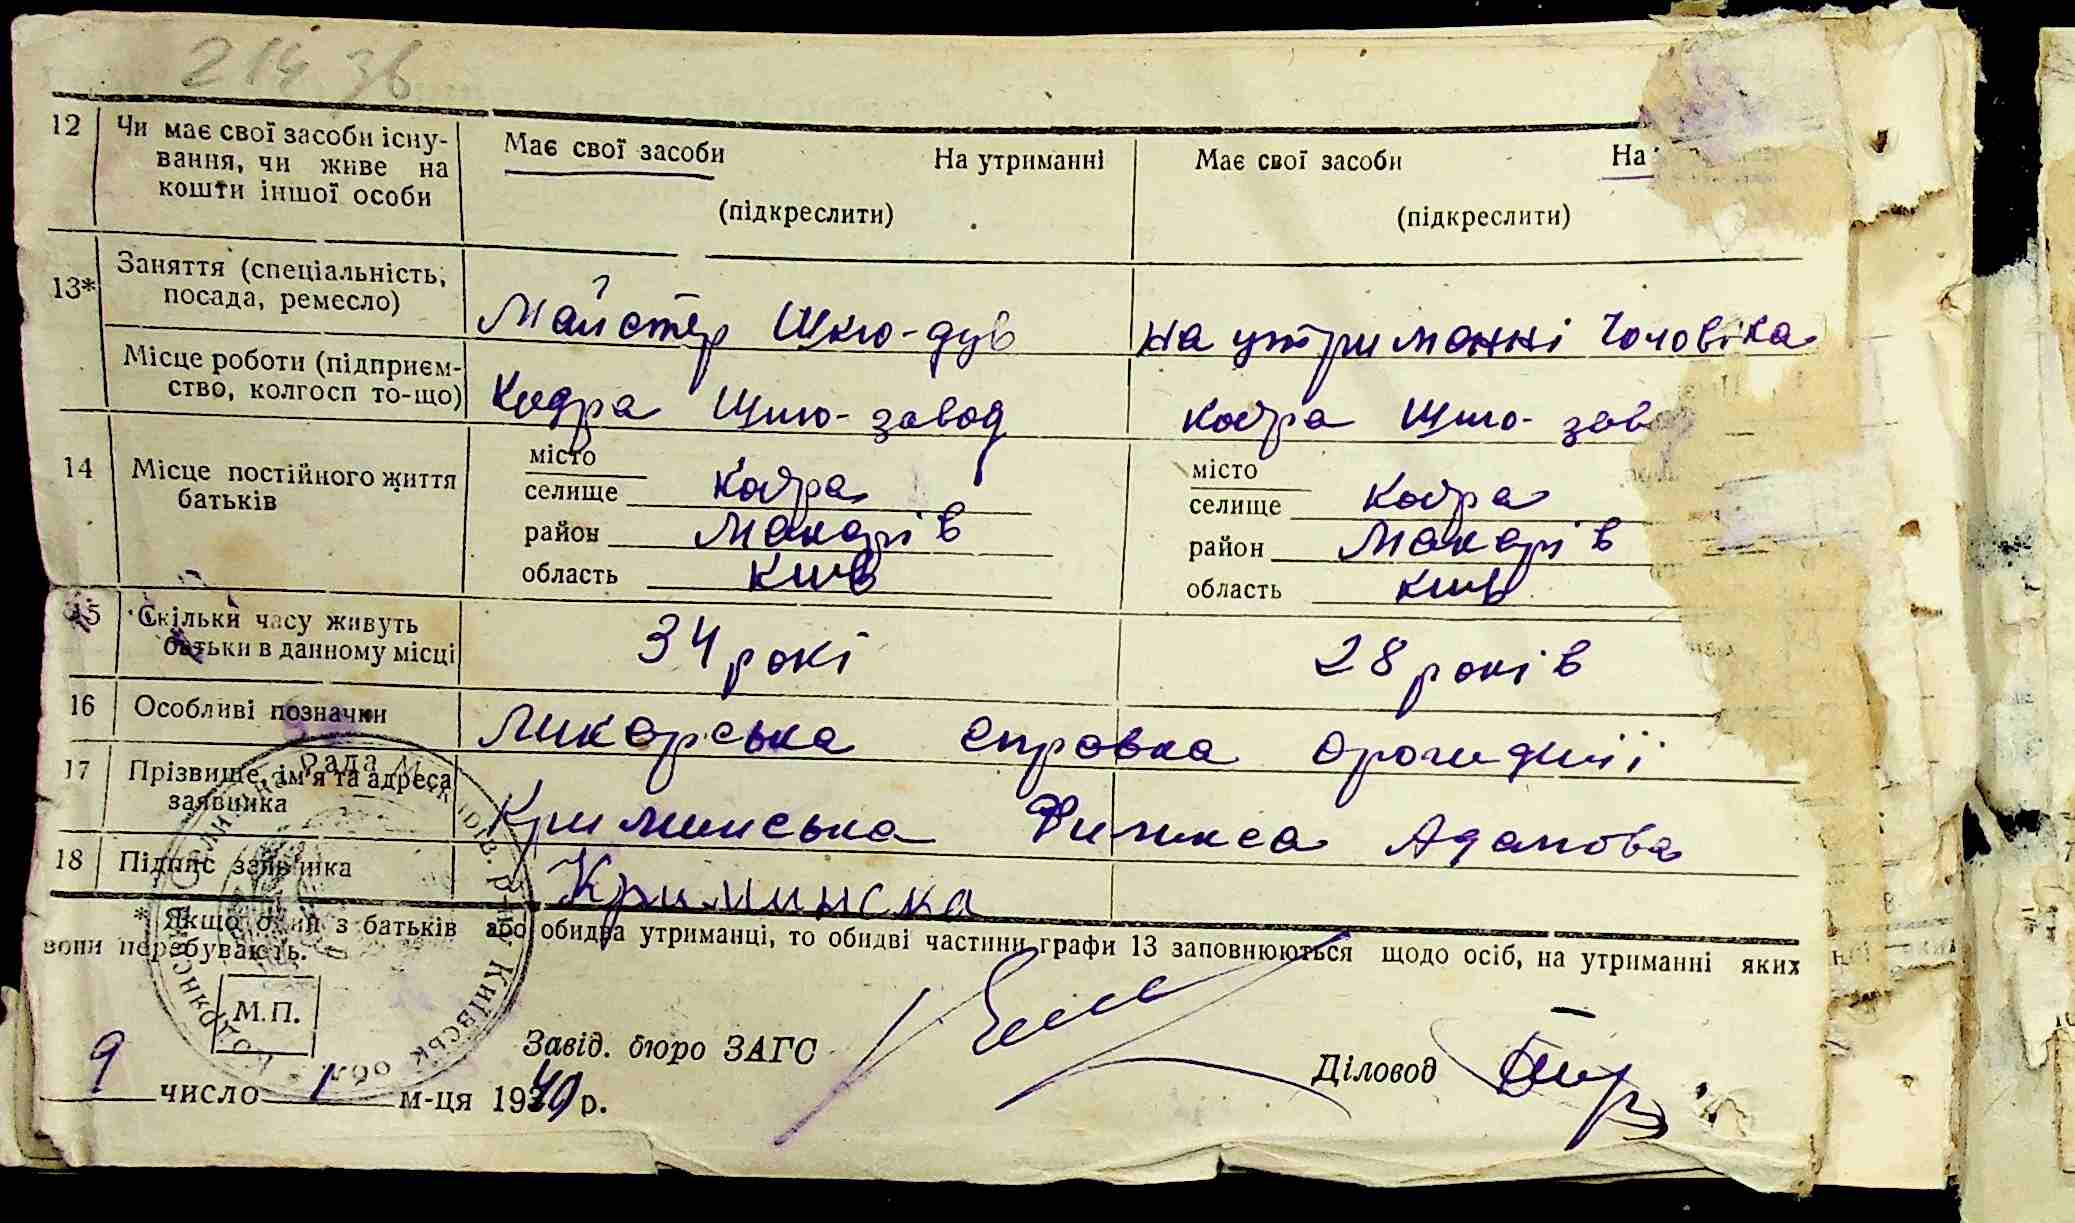 214 зв
12 Чи має свої засоби існу-
вання, чи живе на
кошти іншої особи
Має свої засоби На утриманні
(підкреслити)
Має свої засоби На
(підкреслити)
13* Заняття (спеціальність,
посада, ремесло)
Майстер Шкло-дув
на утриманні чоловіка
Місце роботи (підприєм-
ство, колгосп то-що)
Кодра Шкло-завод
Кодра Шкло-зав
14 Місце постійного життя
батьків
місто
селище Кодра
район Макарів
область Київ
місто
селище Кодра
район Макарів
область Київ
15 Скільки часу живуть
батьки в данному місці
34 рокі
28 років
16 Особливі позначки
Ликарська справка
17 Прізвище, ім'я та адреса
заявника
Криминська Адамова
18 Підпис заявника
Криминска
* Якщо один з батьків або обидва утриманці, то обидві частини графи 13 заповнюються щодо осіб, на утриманні яких
вони перебувають.
М.П.
Завід. бюро ЗАГС
Діловод
9 число 1 м-ця 1940 р.